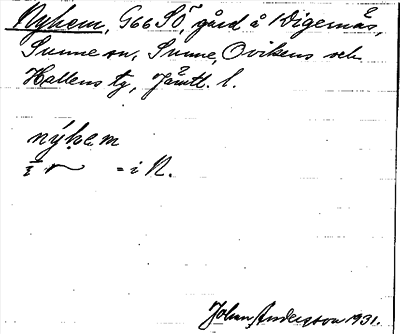 Nyhem, G66 SÖ, gård å Digernäs,
Sunne sn, Sunne, Ovikens och
Hallens tg, Jämtl. l.
nýhem
i ~ = i N.
Johan Anderson 1931.